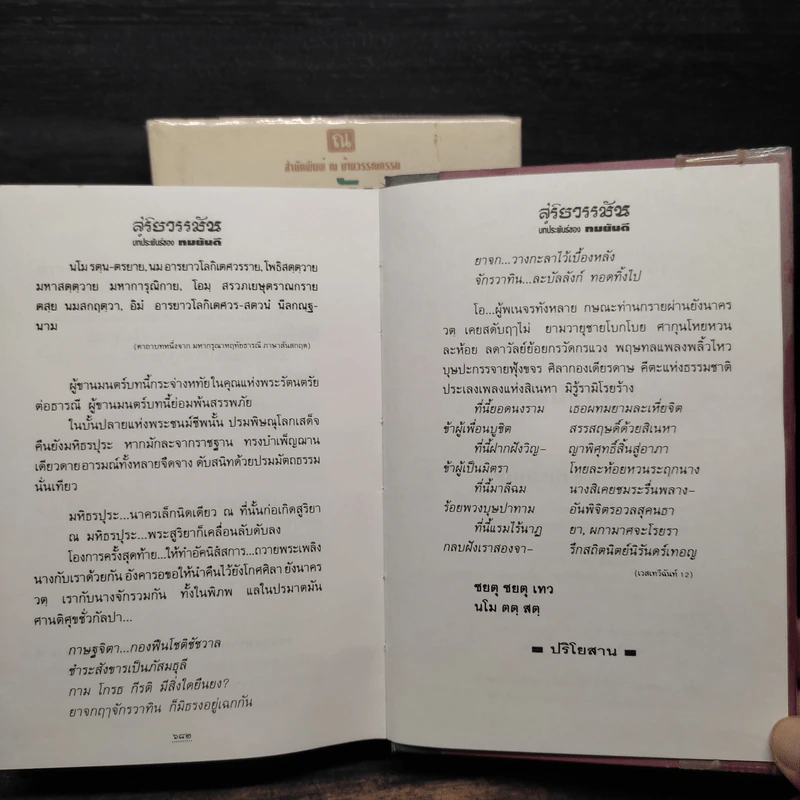 ณ
สำนักพิมพ์ ณ บ้านวรรณกรรม
สุริยวรรมัน
บทประพันธ์ของ ทมยันตี
นโม รตฺน-ตรยาย, นม อารยาวโลกิเตศวรราย, โพธิสตฺตฺวาย
มหาสตฺตฺวาย มหาการุณิกาย, โอมฺ สรวภเยษุตราณกราย
ตสฺย นมสกฤตฺวา, อิมํ อารยาวโลกิเตศวร-สตวนํ นิลกณฺฐ-
นาม
(คาถาบทหนึ่งจาก มหากรุณาทฤทัยธารณี ภาษาสันสกฤต)
ผู้ขานมนตร์บทนี้กระจ่างหทัยในคุณแห่งพระรัตนตรัย
ต่อธารณี ผู้ขานมนตร์บทนี้ย่อมพ้นสรรพภัย
ในบั้นปลายแห่งพระชนม์ชีพนั้น ปรมพิษณุโลกเสด็จ
คืนยังมหิธรปุระ หากมักละจากราชฐาน ทรงบำเพ็ญฌาน
เดียวดายอารมณ์ทั้งหลายจืดจาง ดับสนิทด้วยปรมมัตถธรรม
นั่นเทียว
มหิธรปุระ...นาครเล็กนิดเดียว ณ ที่นั้นก่อเกิดสูริยา
ณ มหิธรปุระ...พระสูริยาก็เคลื่อนลับดับลง
โองการครั้งสุดท้าย...ให้ทำอัคนิสัสการ...ถวายพระเพลิง
นางกับเราด้วยกัน อังคารอขอให้นำคืนไว้ยังโกศศิลา ยังนาคร
วตฺ เรากับนางจักรวมกัน ทั้งในพิภพ แลในปรมาตมัน
ศานติศุขชั่วกัลปา...
กาษฐจิตา...กองฟืนโชติชัชวาล
ชำระสังขารเป็นภัสมธุลี
กาม โกรธ กีรติ มีสิ่งใดยืนยง?
ยาจกฤๅจักรวาทิน ก็มิธรงอยู่เฉกกัน
๖๘๒
สุริยวรรมัน
บทประพันธ์ของ ทมยันตี
ยาจก...วางกะลาไว้เบื้องหลัง
จักรวาทิน...ละบัลลังก์ ทอดทิ้งไป
โอ...ผู้พเนจรทั้งหลาย กษณะท่านกรายผ่านยังนาคร
วต เคยสดับฤๅไม่ ยามวายุชายโบกโบย ศากุนโหยหวน
ละห้อย ลดาวัลย์ย้อยกรวัดกรแวง พฤษทลแพลงพลิ้วไหว
บุษปะกรรจายฟุ้งขจร ศิลากองเดียรดาษ คีตะแห่งธรรมชาติ
ประเลงเพลงแห่งสิเนหา มิรู้รามิโรยร้าง
ที่นี้ยอดนงราม เธอผทมยามละเหี่ยจิต
ข้าผู้เพื่อนบูชิต สรรสฤษดิ์ด้วยสิเนหา
ที่นี้ฝากฝังวิญ– ญาพิศุทธิ์สิ้นสู่อาภา
ข้าผู้เป็นมิตรา โหยละห้อยหวนระฤกนาง
ที่นี้มาลีฉม นางสิเคยชมระรื่นพลาง–
ร้อยพวงบุษปาทาม อันพิจิตรอวลสุคนธา
ที่นี้แรมไร้นาฏ ยา, ผกามาศจะโรยรา
กลบฝังเราสองจา– รึกสถิตนิตย์นิรันดร์เทอญ
(เวสเทวีฉันท์ 12)
ชยตุ ชยตุ เทว
นโม ตตฺ สตฺ
ปริโยสาน